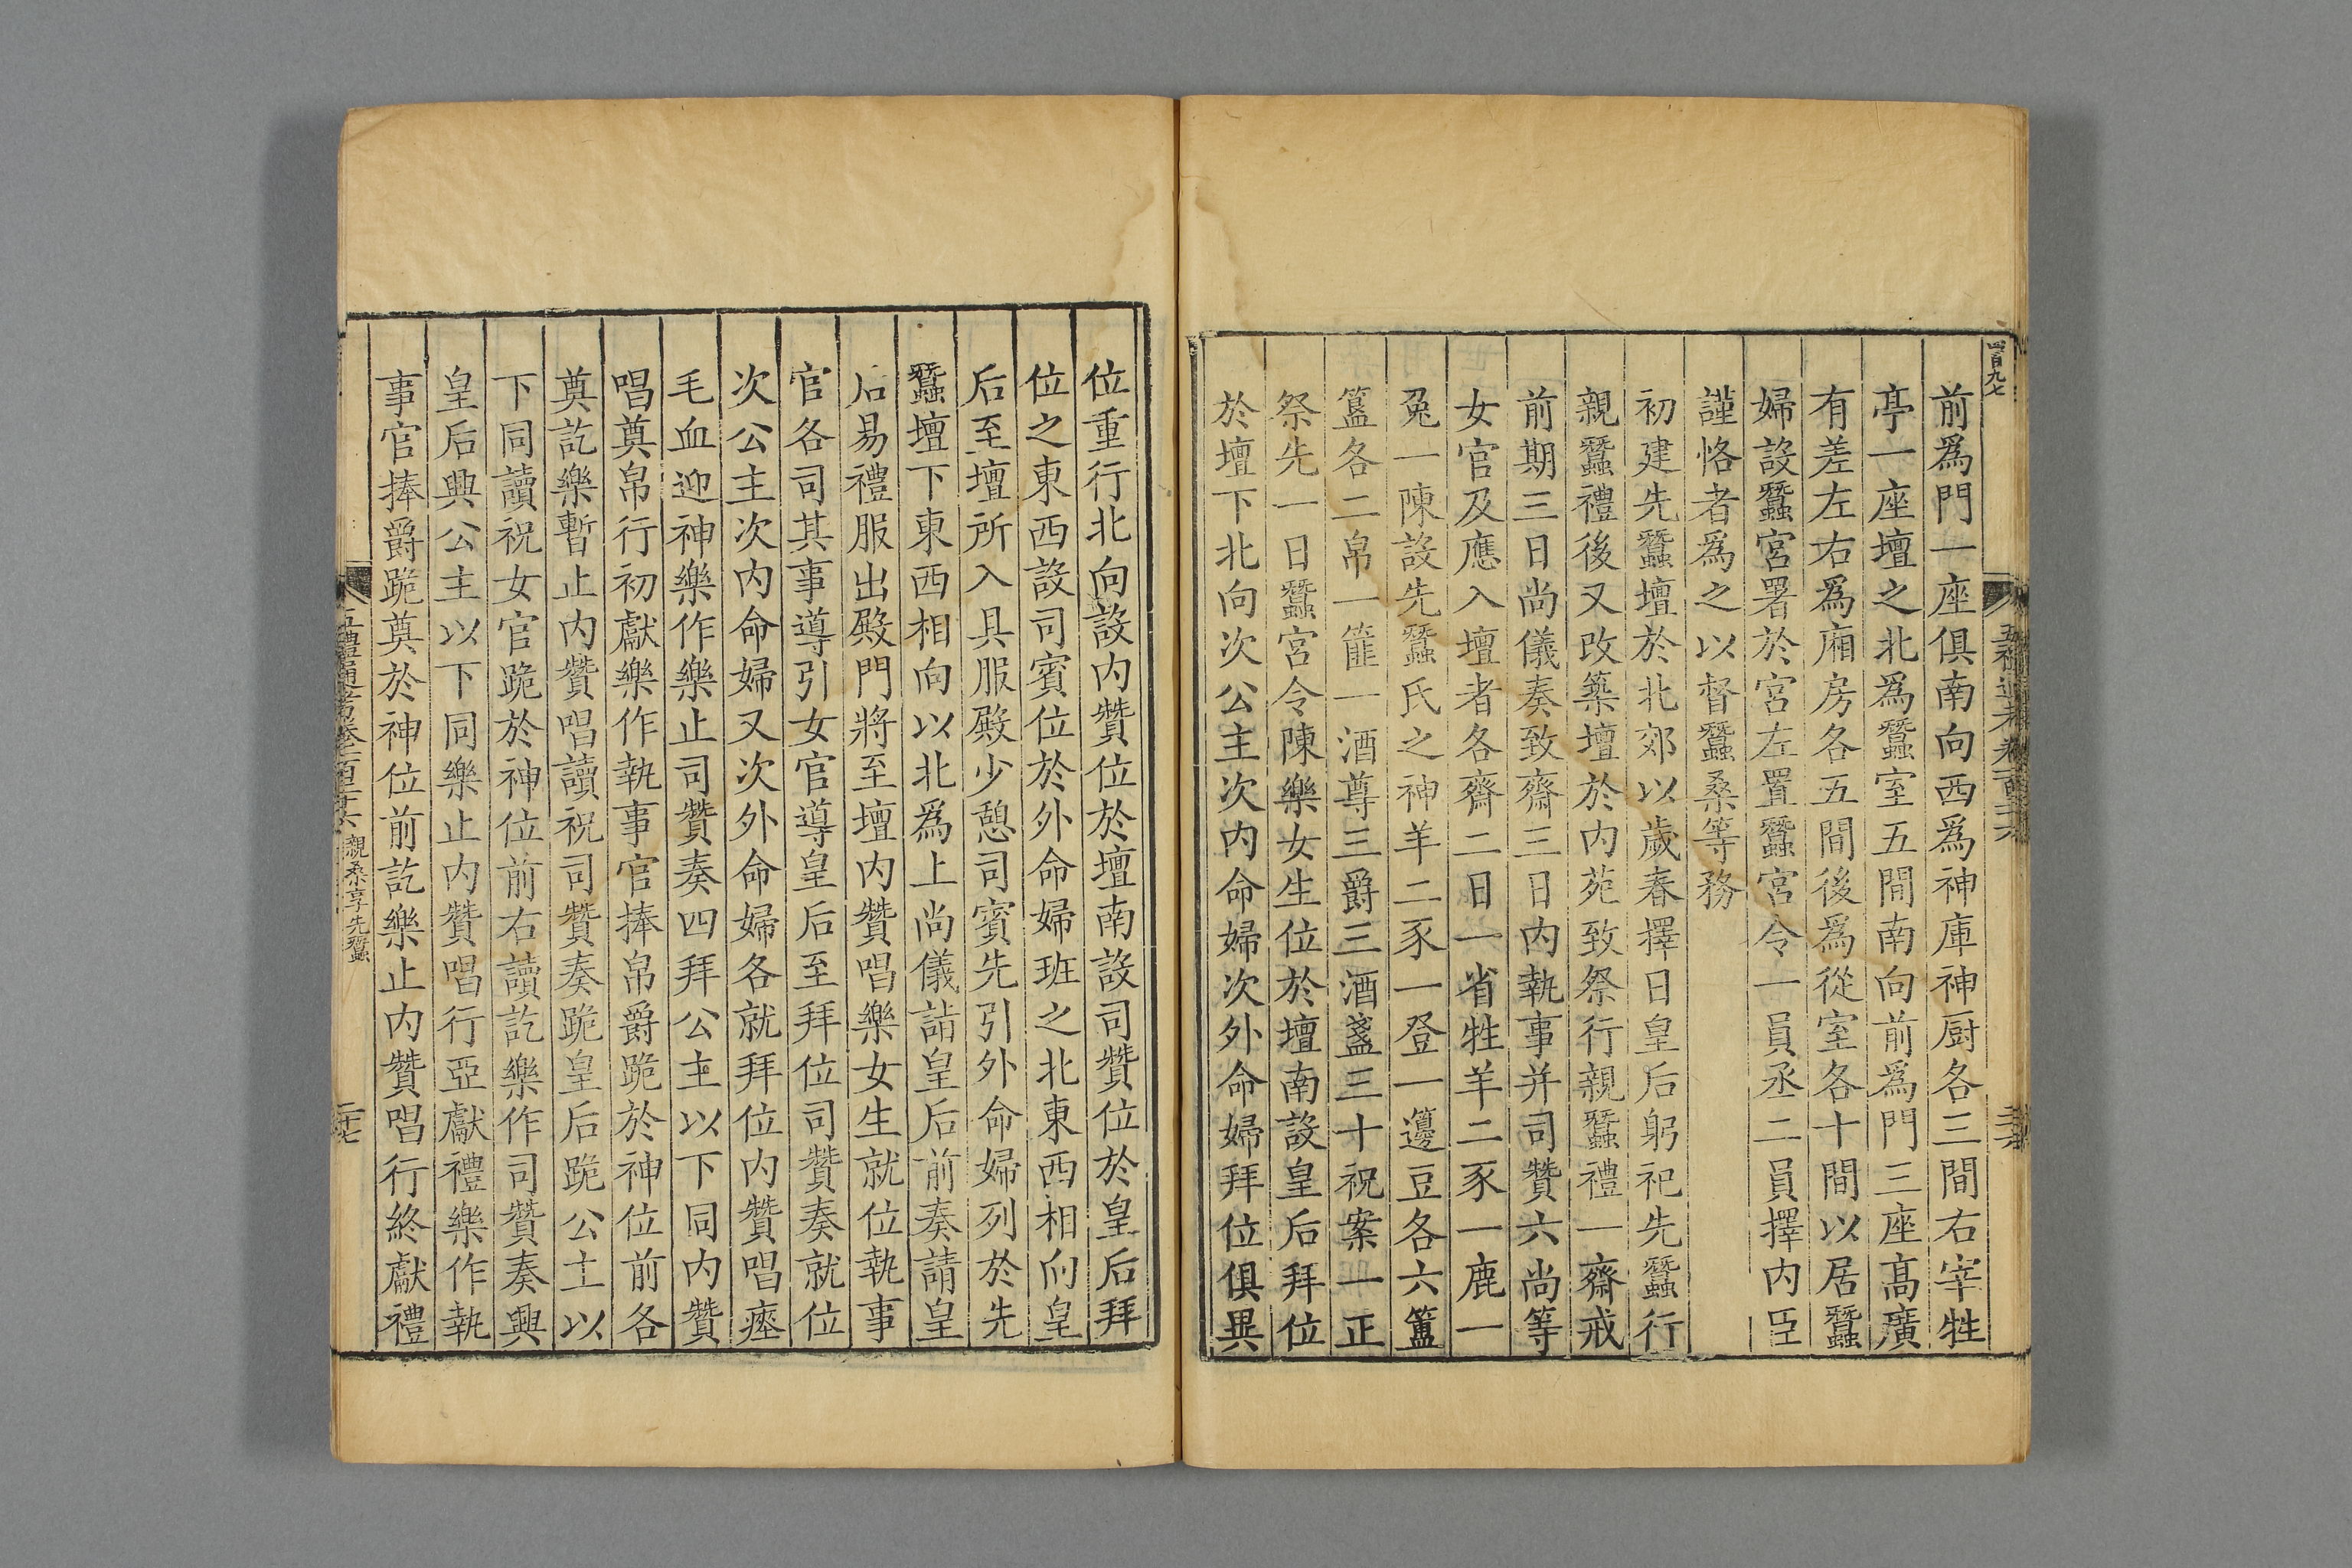 四百九七
前爲門一座俱南向西爲神庫神厨各三間右宰牲
亭一座壇之北爲蠶室五間南向前爲門三座高廣
有差左右爲廂房各五間後爲從室各十間以居蠶
婦設蠶宮署於宮左置蠶宮令一員丞二員擇内臣
謹恪者爲之以督蠶桑等務
初建先蠶壇於北郊以歲春擇日皇后躬祀先蠶行
親蠶禮後又改築壇於内苑致祭行親蠶禮一齋戒
前期三日尚儀奏致齋三日内執事并司贊六尚等
女官及應入壇者各齋二日一省牲羊二豕一鹿一
兔一陳設先蠶氏之神羊二豕一登一籩豆各六簠
簋各二帛一篚一酒尊三爵三酒盞三十祝案一正
祭先一日蠶宮令陳樂女生位於壇南設皇后拜位
於壇下北向次公主次内命婦次外命婦拜位俱異
位重行北向設内贊位於壇南設司贊位於皇后拜
位之東西設司賓位於外命婦班之北東西相向皇
后至壇所入具服殿少憩司賓先引外命婦列於先
蠶壇下東西相向以北爲上尚儀詣皇后前奏請皇
后易禮服出殿門將至壇内贊唱樂女生就位執事
官各司其事導引女官導皇后至拜位司贊奏就位
次公主次内命婦又次外命婦各就拜位内贊唱瘞
毛血迎神樂作樂止司贊奏四拜公主以下同内贊
唱奠帛行初獻樂作執事官捧帛爵跪於神位前各
奠訖樂暫止内贊唱讀祝司贊奏跪皇后跪公主以
下同讀祝女官跪於神位前右讀訖樂作司贊奏興
皇后興公主以下同樂止内贊唱行亞獻禮樂作執
事官捧爵跪奠於神位前訖樂止内贊唱行終獻禮
五禮通考卷一百二十六 親桑享先蠶 二十七